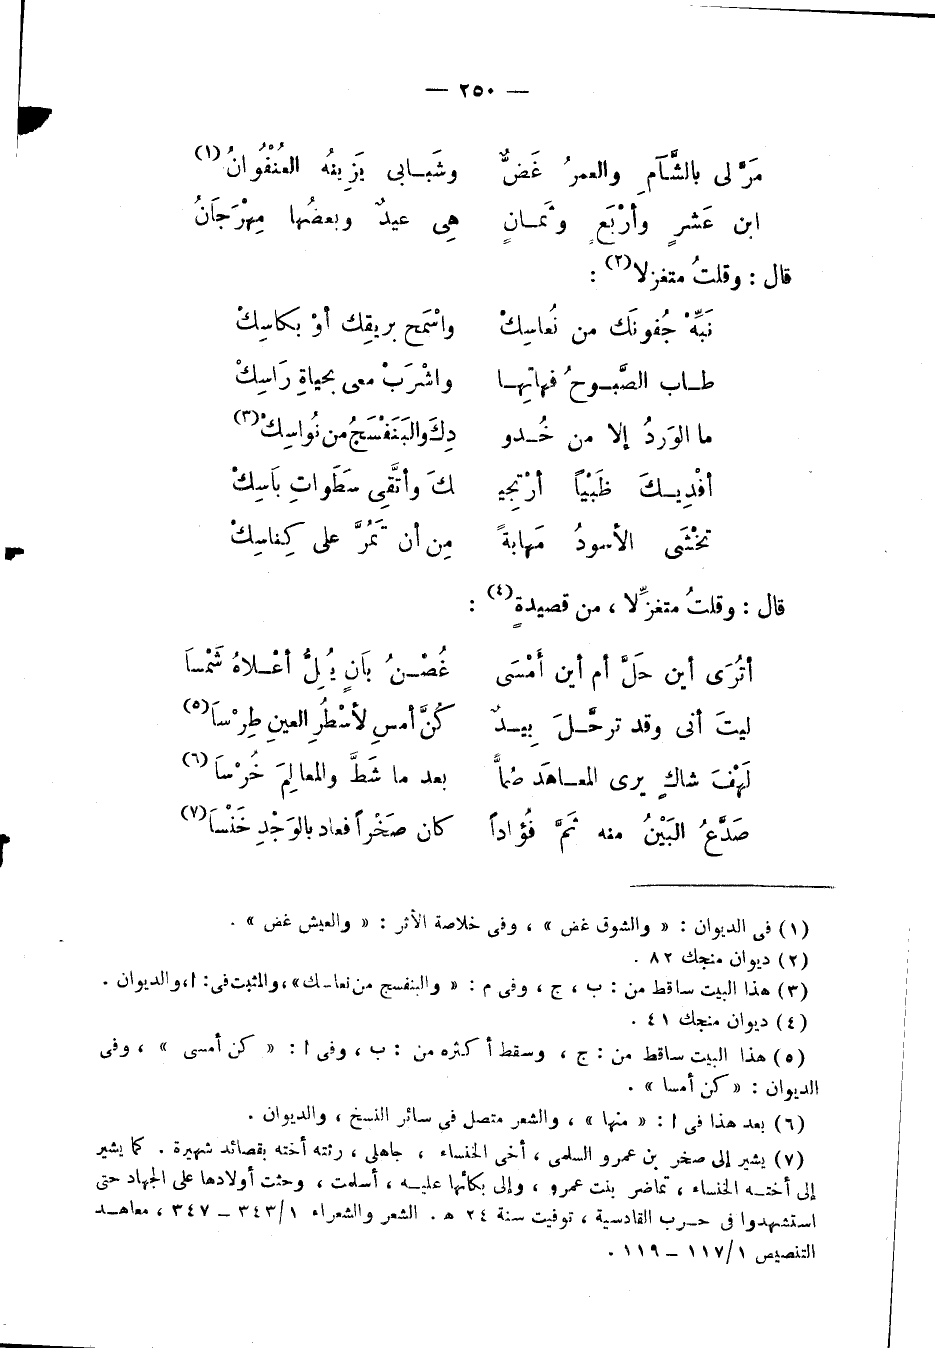 — ٢٥٠ —
مَرَّ لى بالشَّآمِ والعمرُ غَضٌّ وشَبــابى يَزِينُه العُنْفُوانُ(١)
ابن عَشرٍ وأرْبَعٍ وثَمــانٍ هِى عيدٌ وبعضُها مِهْرَجَانُ
قال : وقلتُ متغزلا(٢) :
نَبِّهْ جُفونَك من نُعاسِكْ واسْمَح بريقِك أوْ بكاسِكْ
طــاب الصَّبــوحُ فهاتِهــا واشْرَبْ معى بحياةِ رَاسِكْ
ما الوَردُ إلا من خُــدو دِكَ والبَنَفْسَجُ من نُواسِكْ(٣)
أفْدِيــكَ ظَبْياً أرْتجِى لكَ وأتَّقِى سَطَواتِ بَاسِكْ
تخْشَى الأسودُ مَهابةً مِن أن تَمُرَّ على كِناسِكْ
قال : وقلتُ متغزِّلا ، من قصيدةٍ(٤) :
أتُرَى أين حَلَّ أم أين أَمْسَى غُصْــنُ بَانٍ يُقِلُّ أعْــلاهُ شَمْسَا
ليتَ أنى وقد ترحَّــلَ بِيــدٌ كُنَّ أمسِ لأسْطُرِ العينِ طِرْسَا(٥)
لَهْفَ شاكٍ يرى المعــاهَد صُمًّا بعد ما شَطَّ والمعالِمَ خُرْسَا(٦)
صَدَّعُ البَيْنُ منه ثَمَّ فُؤاداً كان صَخْراً فعاد بالوَجْدِ خَنْسَا(٧)
(١) فى الديوان : « والشوق غض » ، وفى خلاصة الأثر : « والعيش غض » .
(٢) ديوان منجك ٨٢ .
(٣) هذا البيت ساقط من : ب ، ج ، وفى م : « والبنفسج من نعاسك » ، والمثبت فى : ا ، والديوان .
(٤) ديوان منجك ٤١ .
(٥) هذا البيت ساقط من : ج ، وسقط أكثره من : ب ، وفى ا : « كن أمسى » ، وفى
الديوان : « كن أمسا » .
(٦) بعد هذا فى ا : « منها » ، والشعر متصل فى سائر النسخ ، والديوان .
(٧) يشير إلى صخر بن عمرو السلمى ، أخى الخنساء ، جاهلى ، رثته أخته بقصائد شهيرة . كما يشير
إلى أختــه الخنساء ، تماضر بنت عمرو ، وإلى بكائها عليــه ، أسلمت ، وحثت أولادها على الجهاد حتى
استشهدوا فى حــرب القادسية ، توفيت سنة ٢٤ هـ . الشعر والشعراء ٣٤٣/١ – ٣٤٧ ، معاهــد
التنصيص ١١٧/١ – ١١٩ .